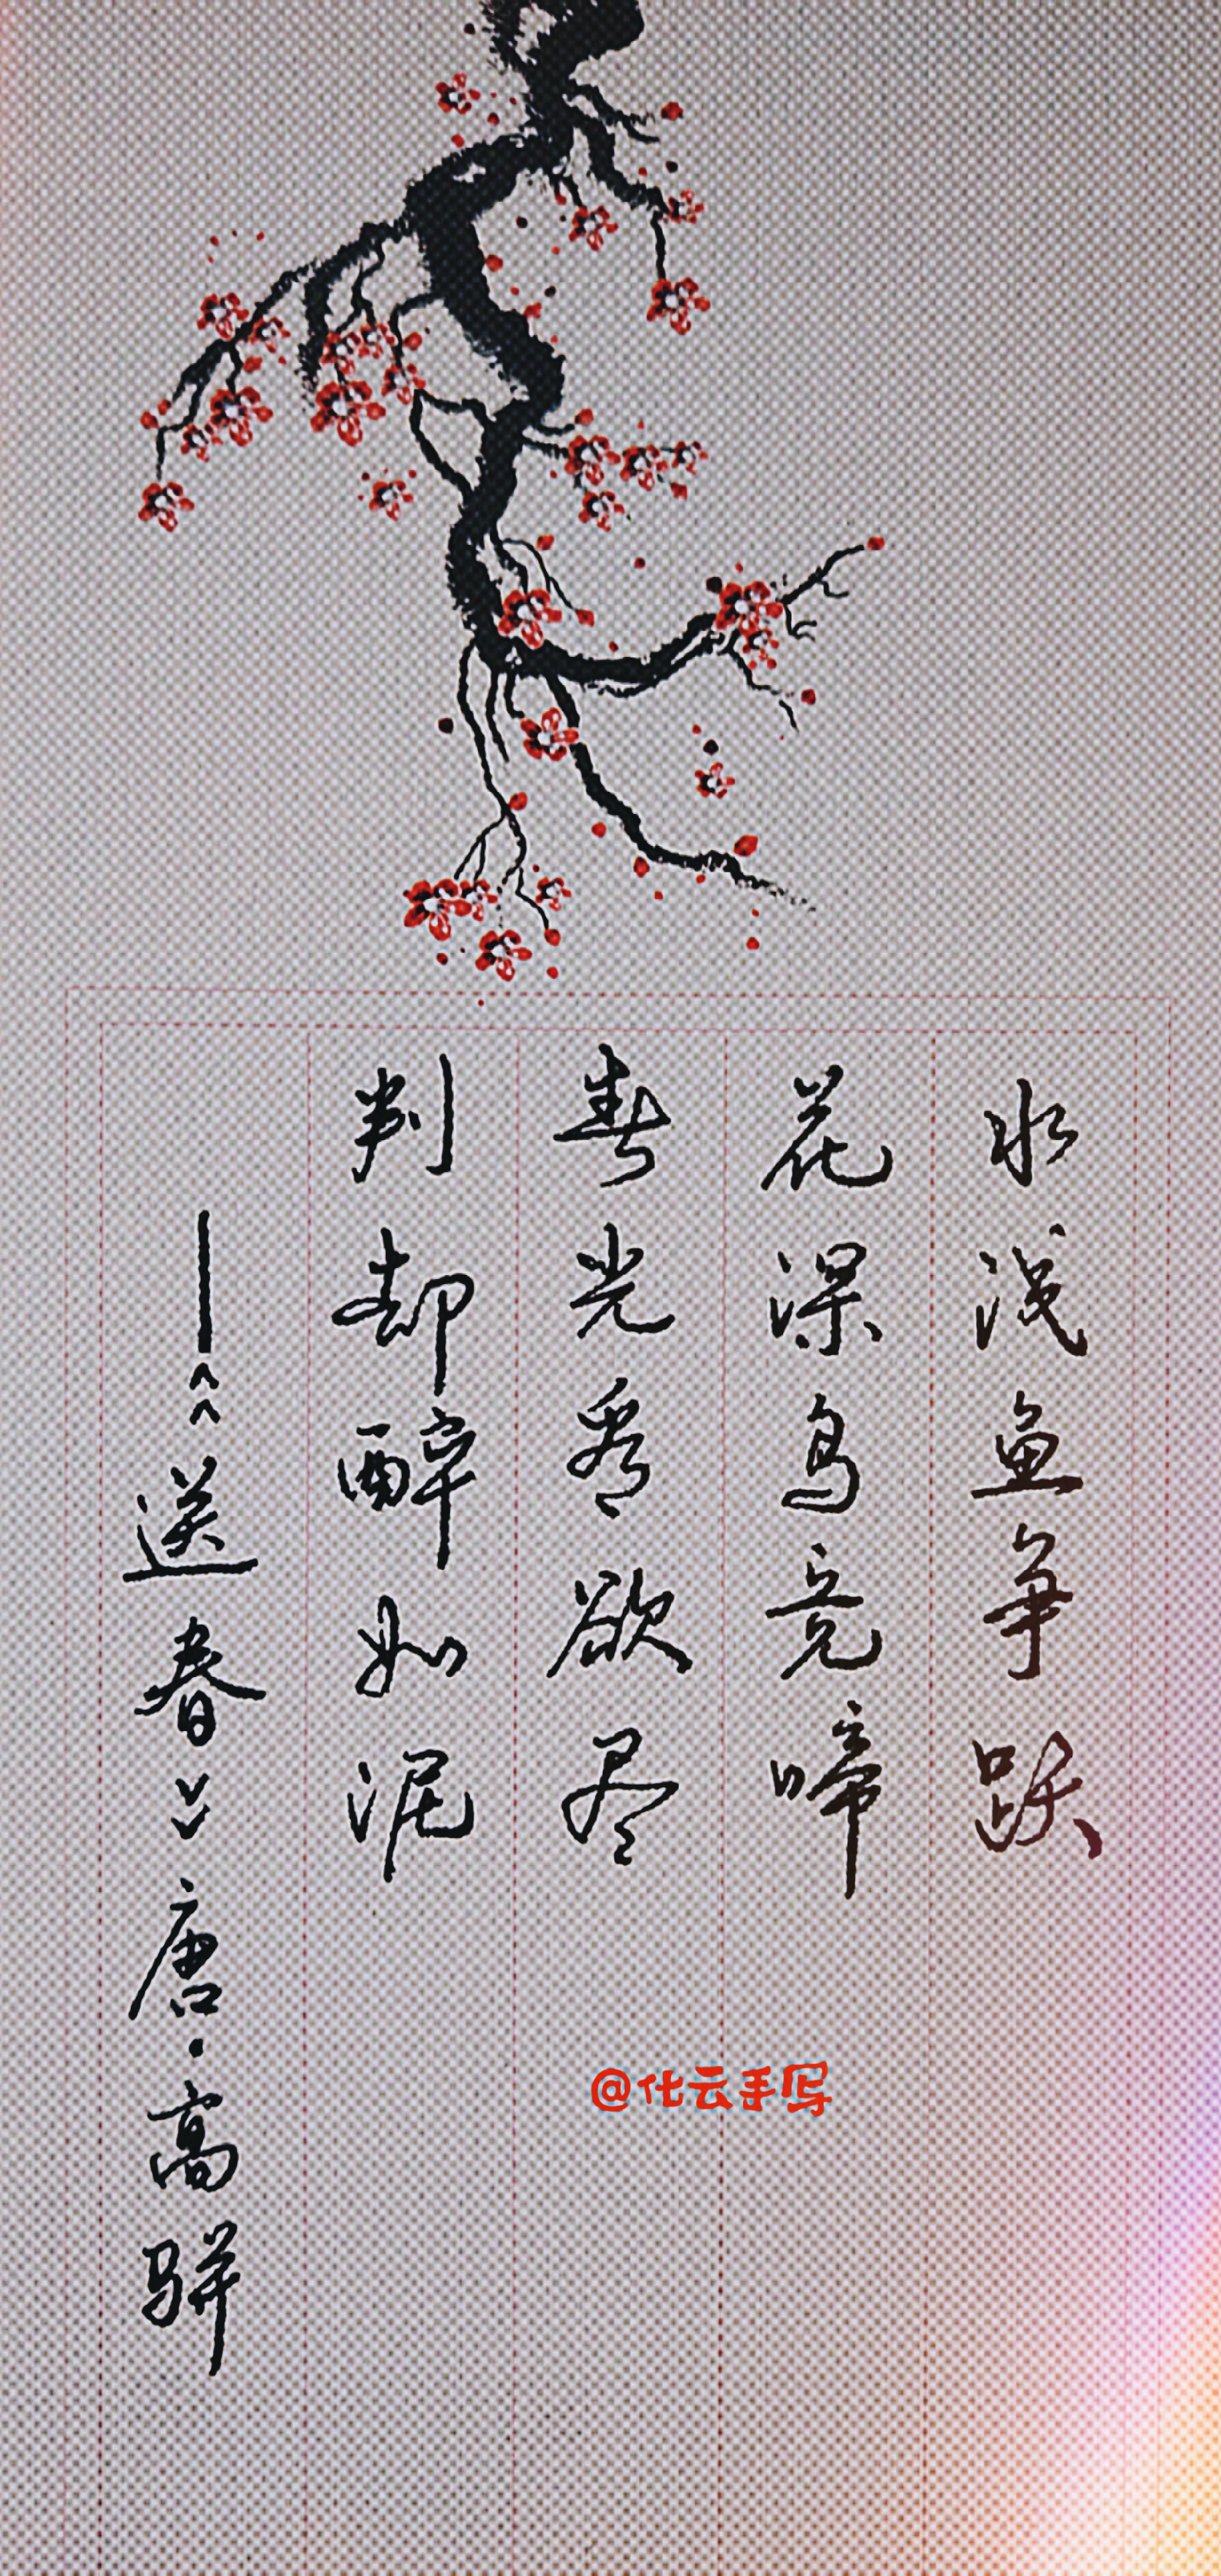 水浅鱼争跃
花深鸟竞啼
春光看欲尽
判却醉如泥
——《送春》唐·高骈
@化云手写